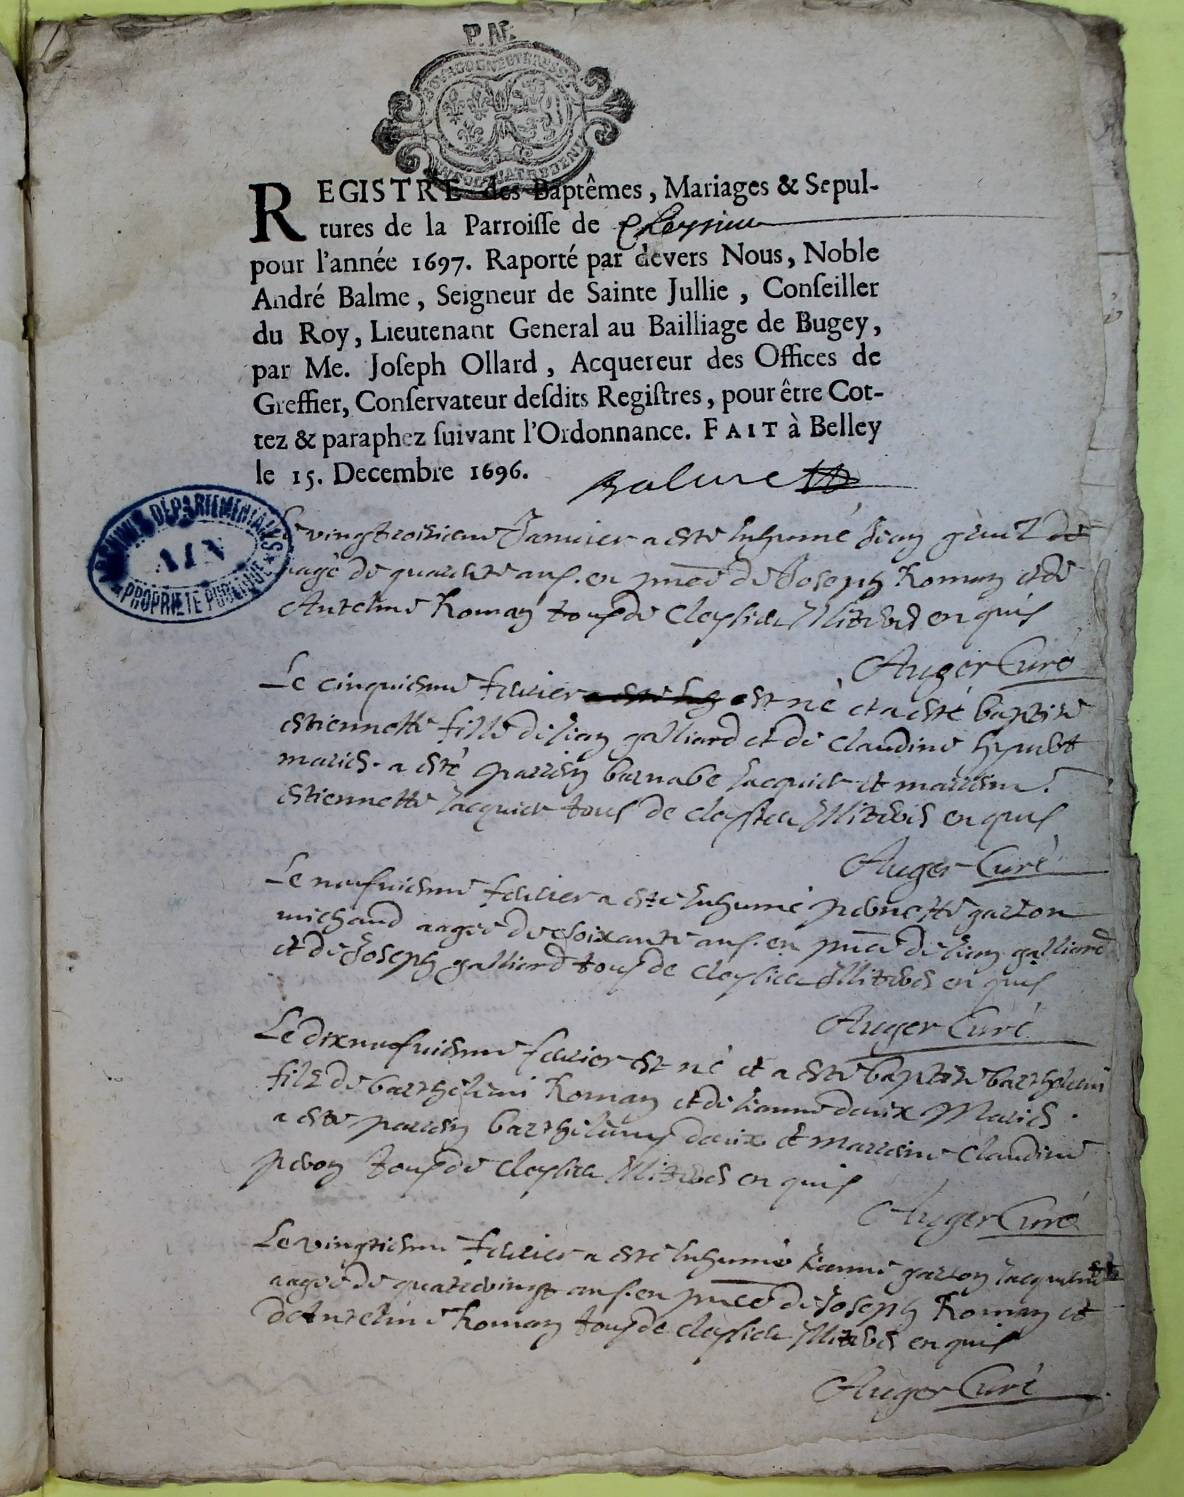 P. NF.
REGISTRE des Baptêmes, Mariages & Sepul-
tures de la Parroisse de Cleyzieu
pour l'année 1697. Raporté par devers Nous, Noble
André Balme, Seigneur de Sainte Jullie, Conseiller
du Roy, Lieutenant General au Bailliage de Bugey,
par Me. Joseph Ollard, Acquereur des Offices de
Greffier, Conservateur desdits Registres, pour être Cot-
tez & paraphez suivant l'Ordonnance. FAIT à Belley
le 15. Decembre 1696.
Balme
ARCHIVES DÉPARTEMENTALES
AIN
PROPRIÉTÉ PUBLIQUE
Le vingtroisieme Januier a esté Inhumé Jean
aagé de quarente ans. en pñce de Joseph Roman et de
Antelme Roman tous de Cleysieu Illiteres enquis
Auger Curé
Le cinquiesme feurier est né et a esté baptisé
estiennette fille de Jean galliard et de Claudine
mariés. a esté parrein barnabe Jacquier et marreine
estiennette Jacquier tous de cleysieu Illiteres enquis
Auger Curé
Le neufuiesme feurier a esté Inhumé pernette garron
michaud aagée de soixante ans. en pñce de Jean galliard
et de Joseph galliard tous de Cleysieu Illiteres enquis
Auger Curé
Le dixneufuiesme feurier est né et a esté baptisé barthelemi
filz de barthelemi Roman et de Jeanne deuix Mariés.
a esté parrein barthelemy deuix et marreine Claudine
tous de Cleysieu Illiteres enquis
Auger Curé
Le vingtiesme feurier a esté Inhumé Jeanne garron
aagée de quatrevingt ans. en pñce de Joseph Roman et
d'Antelme Roman tous de cleysieu Illiteres enquis
Auger Curé